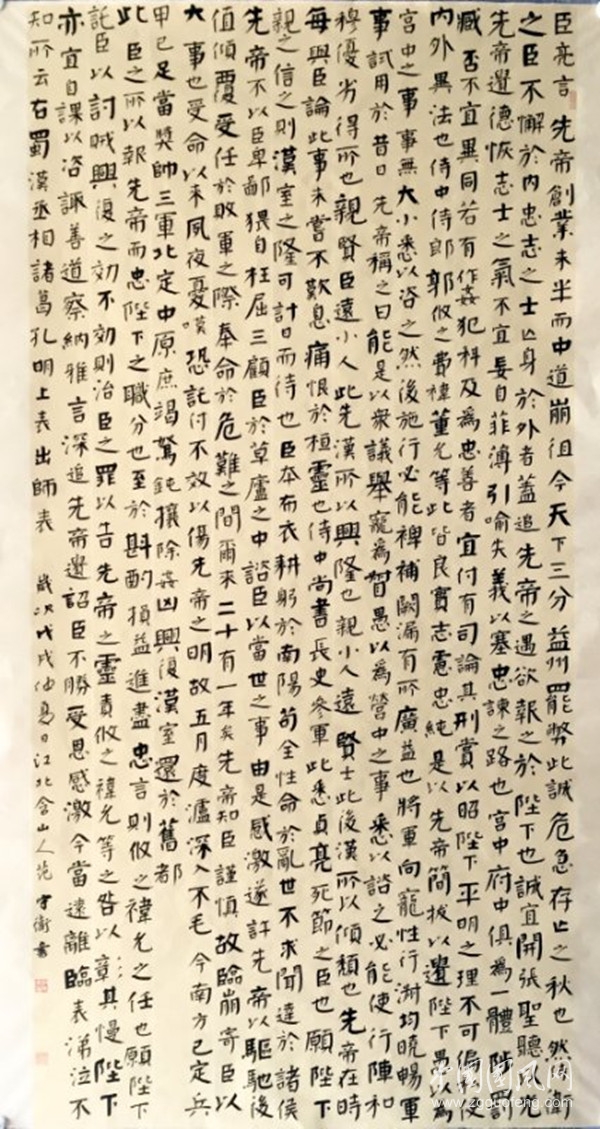 臣亮言先帝創業未半而中道崩徂今天下三分益州罷弊此誠危急存亡之秋也然侍衛
之臣不懈於內忠志之士亡身於外者蓋追先帝之遇欲報之於陛下也誠宜開張聖聽以光
先帝遺德恢志士之氣不宜妄自菲薄引喻失義以塞忠諫之路也宮中府中俱為一體陟罰
臧否不宜異同若有作姦犯科及為忠善者宜付有司論其刑賞以昭陛下平明之理不可偏私使
內外異法也侍中侍郎郭攸之費禕董允等此皆良實志慮忠純是以先帝簡拔以遺陛下愚以為
宮中之事事無大小悉以咨之然後施行必能裨補闕漏有所廣益也將軍向寵性行淑均曉暢軍
事試用於昔日先帝稱之曰能是以衆議舉寵為督愚以為營中之事悉以諮之必能使行陣和
穆優劣得所也親賢臣遠小人此先漢所以興隆也親小人遠賢士此後漢所以傾頹也先帝在時
每與臣論此事未嘗不歎息痛恨於桓靈也侍中尚書長史參軍此悉貞亮死節之臣也願陛下
親之信之則漢室之隆可計日而待也臣本布衣耕躬於南陽苟全性命於亂世不求聞達於諸侯
先帝不以臣卑鄙猥自枉屈三顧臣於草廬之中諮臣以當世之事由是感激遂許先帝以驅馳後
值傾覆受任於敗軍之際奉命於危難之間爾來二十有一年矣先帝知臣謹慎故臨崩寄臣以
大事也受命以來夙夜憂嘆恐託付不效以傷先帝之明故五月度瀘深入不毛今南方已定兵
甲已足當獎帥三軍北定中原庶竭駑鈍攘除姦凶興復漢室還於舊都
此臣之所以報先帝而忠陛下之職分也至於斟酌損益進盡忠言則攸之禕允之任也願陛下
託臣以討賊興復之効不効則治臣之罪以告先帝之靈責攸之禕允等之咎以章其慢陛下
亦宜自課以咨諏善道察納雅言深追先帝遺詔臣不勝受恩感激今當遠離臨表涕泣不
知所云右蜀漢丞相諸葛孔明上表出師表 歲次戊戌仲夏日江北含山人范守衛書
中國國風网
www.zgguofeng.com